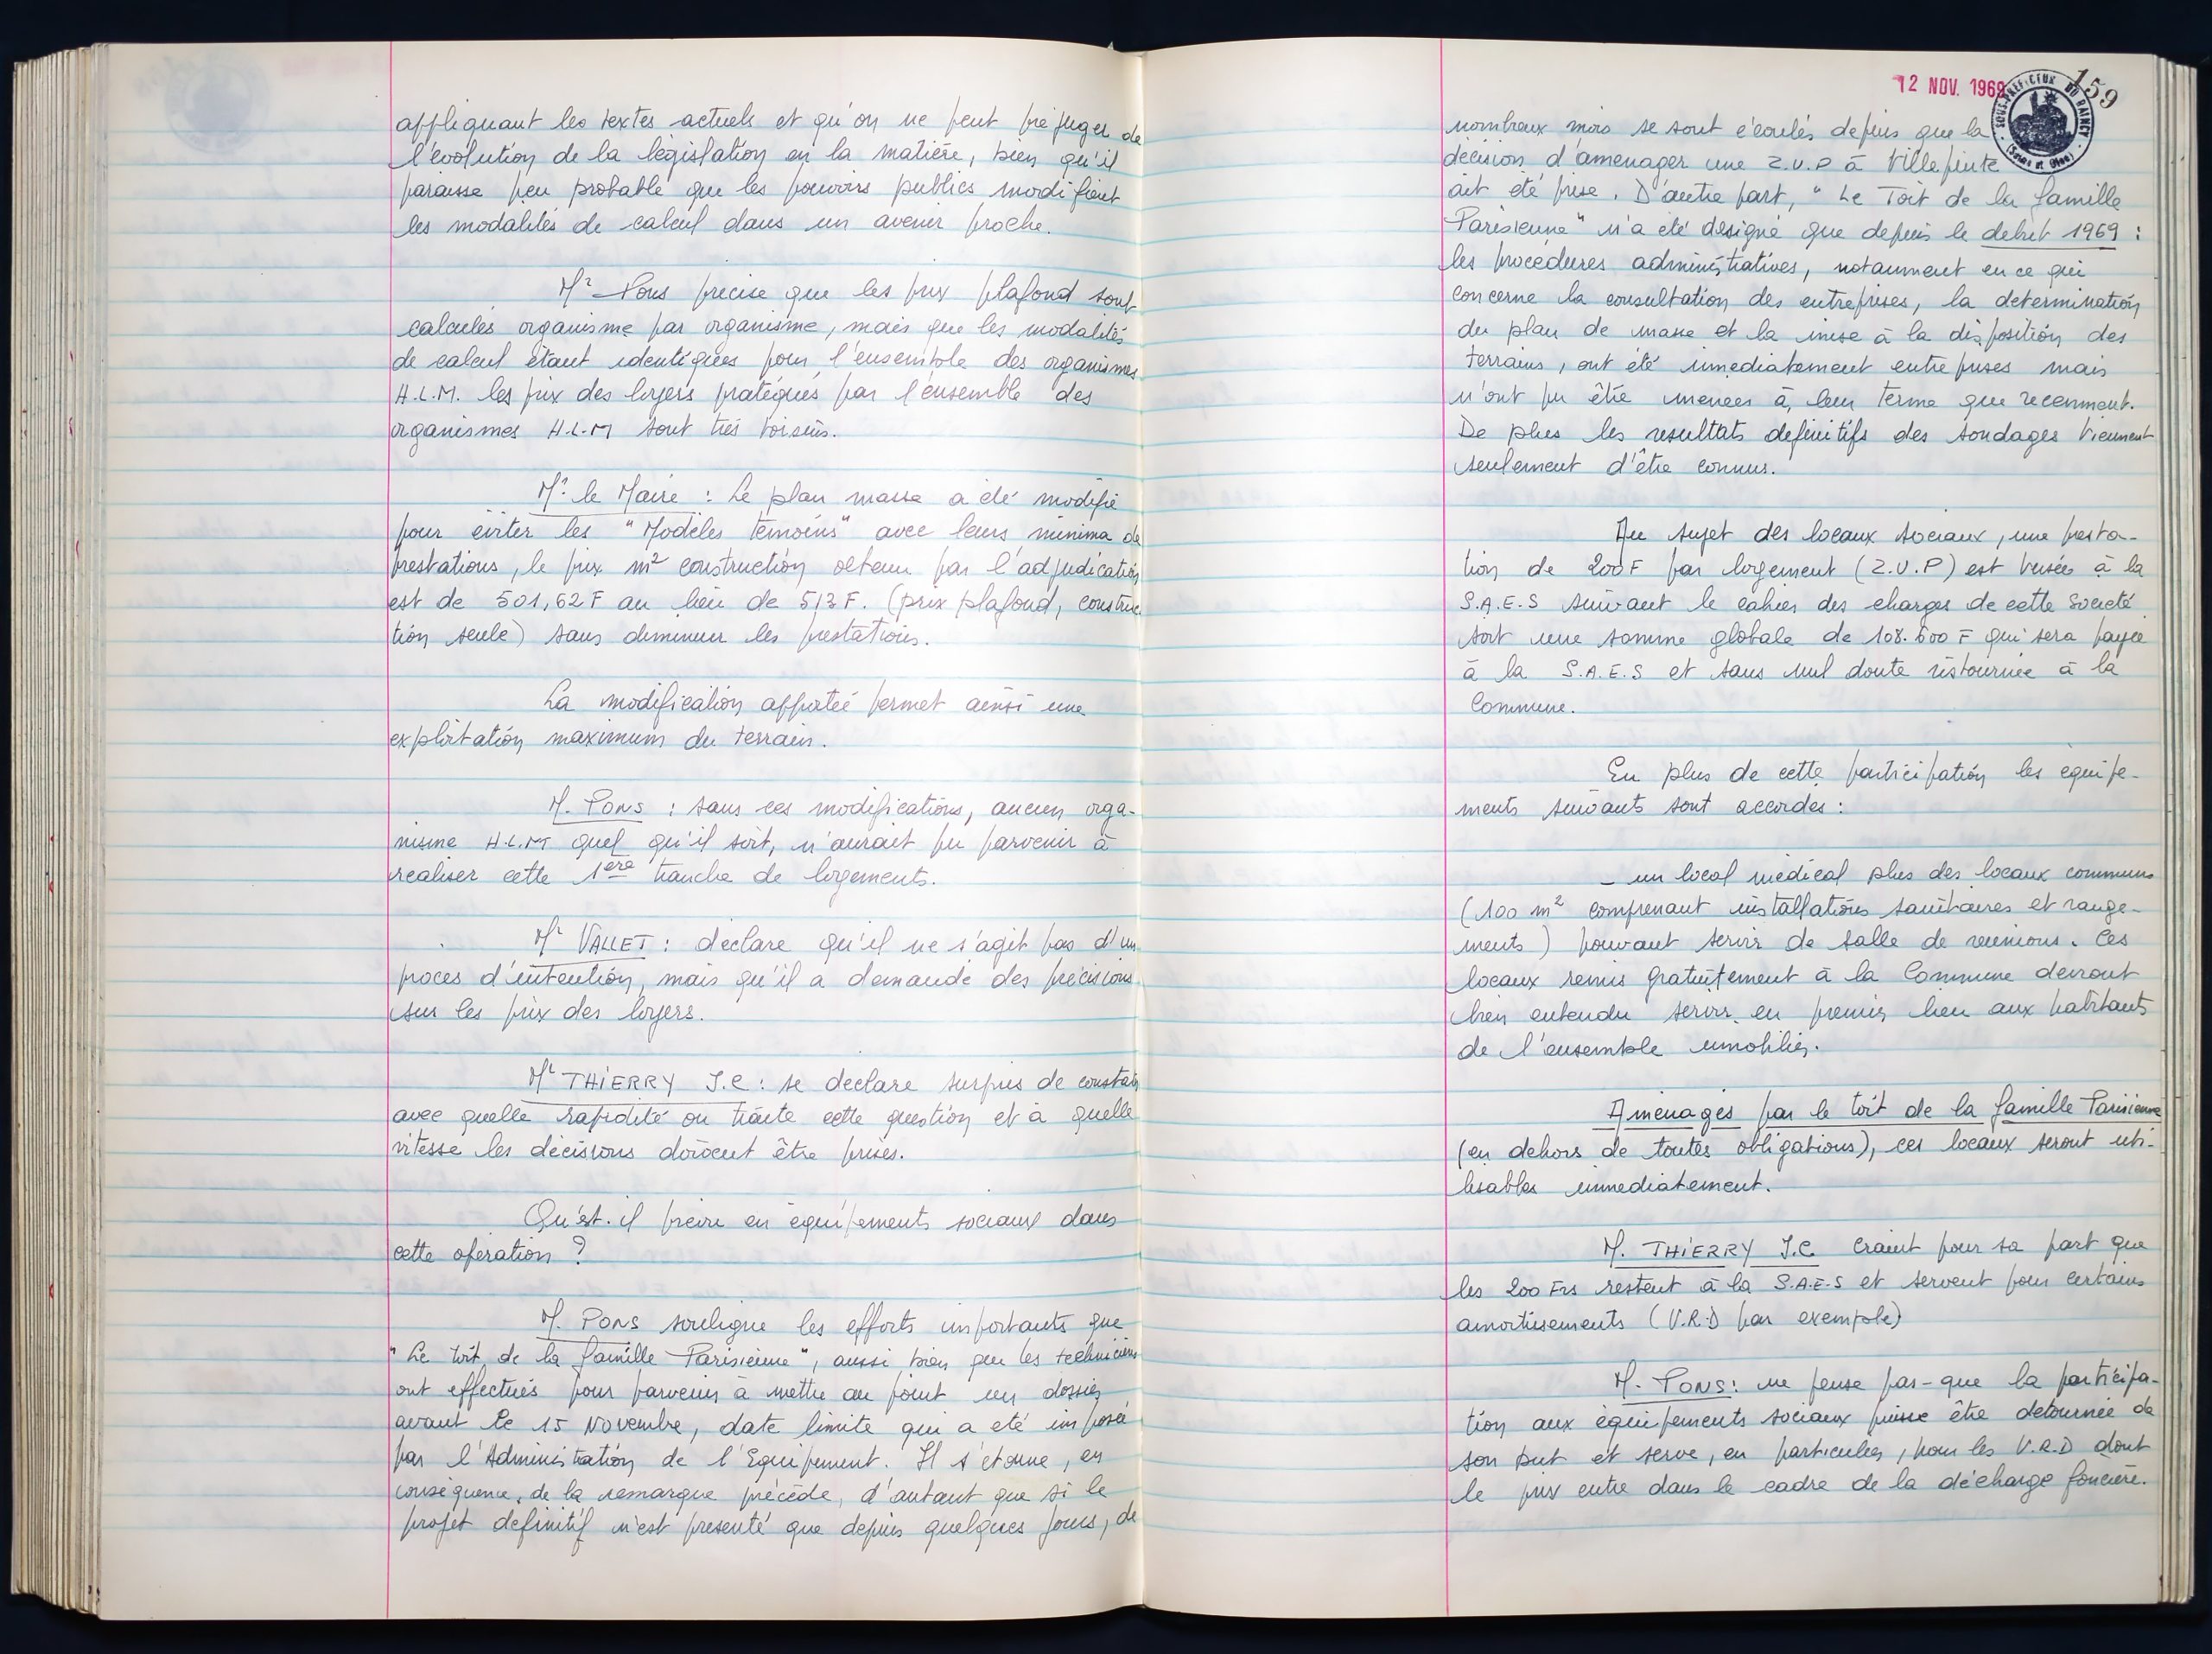 appliquant les textes actuels et qu'on ne peut préjuger de
l'évolution de la législation en la matière, bien qu'il
paraisse peu probable que les pouvoirs publics modifient
les modalités de calcul dans un avenir proche.
Mr Pons précise que les prix plafond sont
calculés organisme par organisme, mais que les modalités
de calcul étant identiques pour l'ensemble des organismes
H.L.M. les prix des loyers pratiqués par l'ensemble des
organismes H.L.M sont très voisins.
Mr. le Maire : Le plan masse a été modifié
pour éviter les "Modèles témoins" avec leurs minima de
prestations, le prix m² construction obtenu par l'adjudication
est de 501,62 F au lieu de 513 F. (prix plafond, construc
tion seule) sans diminuer les prestations.
La modification apportée permet ainsi une
exploitation maximum du terrain.
M. PONS : sans ces modifications, aucun orga-
nisme H.L.M quel qu'il soit, n'aurait pu parvenir à
réaliser cette 1ère tranche de logements.
Mr VALLET : déclare qu'il ne s'agit pas d'un
procès d'intention, mais qu'il a demandé des précisions
sur les prix des loyers.
Mr THIERRY J.C : se déclare surpris de constater
avec quelle rapidité on traite cette question et à quelle
vitesse les décisions doivent être prises.
Qu'est-il prévu en équipements sociaux dans
cette opération ?
M. PONS souligne les efforts importants que
"Le toit de la famille Parisienne", aussi bien que les techniciens
ont effectués pour parvenir à mettre au point un dossier
avant le 15 Novembre, date limite qui a été imposée
par l'Administration de l'Equipement. Il s'étonne, en
conséquence, de la remarque précède, d'autant que si le
projet définitif n'est présenté que depuis quelques jours, de
12 NOV. 1969
159
SOUS-PREFECTURE DU RAINCY
(Seine et Oise)
nombreux mois se sont écoulés depuis que la
décision d'aménager une Z.U.P à Villepinte
ait été prise. D'autre part, "Le Toit de la famille
Parisienne" n'a été désigné que depuis le début 1969 :
les procédures administratives, notamment en ce qui
concerne la consultation des entreprises, la détermination
du plan de masse et la mise à la disposition des
terrains, ont été immédiatement entreprises mais
n'ont pu être menées à leur terme que récemment.
De plus les résultats définitifs des sondages viennent
seulement d'être connus.
Au sujet des locaux sociaux, une presta-
tion de 200 F par logement (Z.U.P) est versée à la
S.A.E.S suivant le cahier des charges de cette Société
soit une somme globale de 108.600 F qui sera payée
à la S.A.E.S et sans nul doute ristournée à la
Commune.
En plus de cette participation les équipe-
ments suivants sont accordés :
- un local médical plus des locaux communs
(100 m² comprenant installations sanitaires et range-
ments) pouvant servir de salle de réunions. Ces
locaux remis gratuitement à la Commune devront
bien entendu servir en premier lieu aux habitants
de l'ensemble immobilier.
Aménagés par le toit de la famille Parisienne
(en dehors de toutes obligations), ces locaux seront uti-
lisables immédiatement.
M. THIERRY J.C. craint pour sa part que
les 200 Frs restent à la S.A.E.S et servent pour certains
amortissements (V.R.D par exemple)
M. PONS : ne pense pas-que la participa-
tion aux équipements sociaux puisse être détournée de
son but et serve, en particulier, pour les V.R.D dont
le prix entre dans le cadre de la décharge foncière.